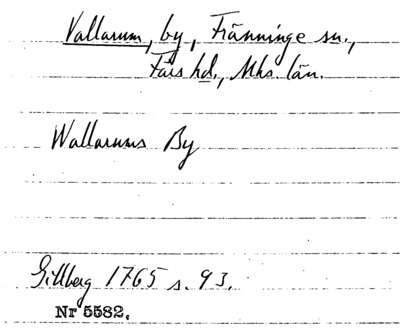 Vallarum, by, Fränninge sn.,
Färs hd., Mhs. län.
Wallarums By
Gillberg 1765 s. 93.
Nr 5582.